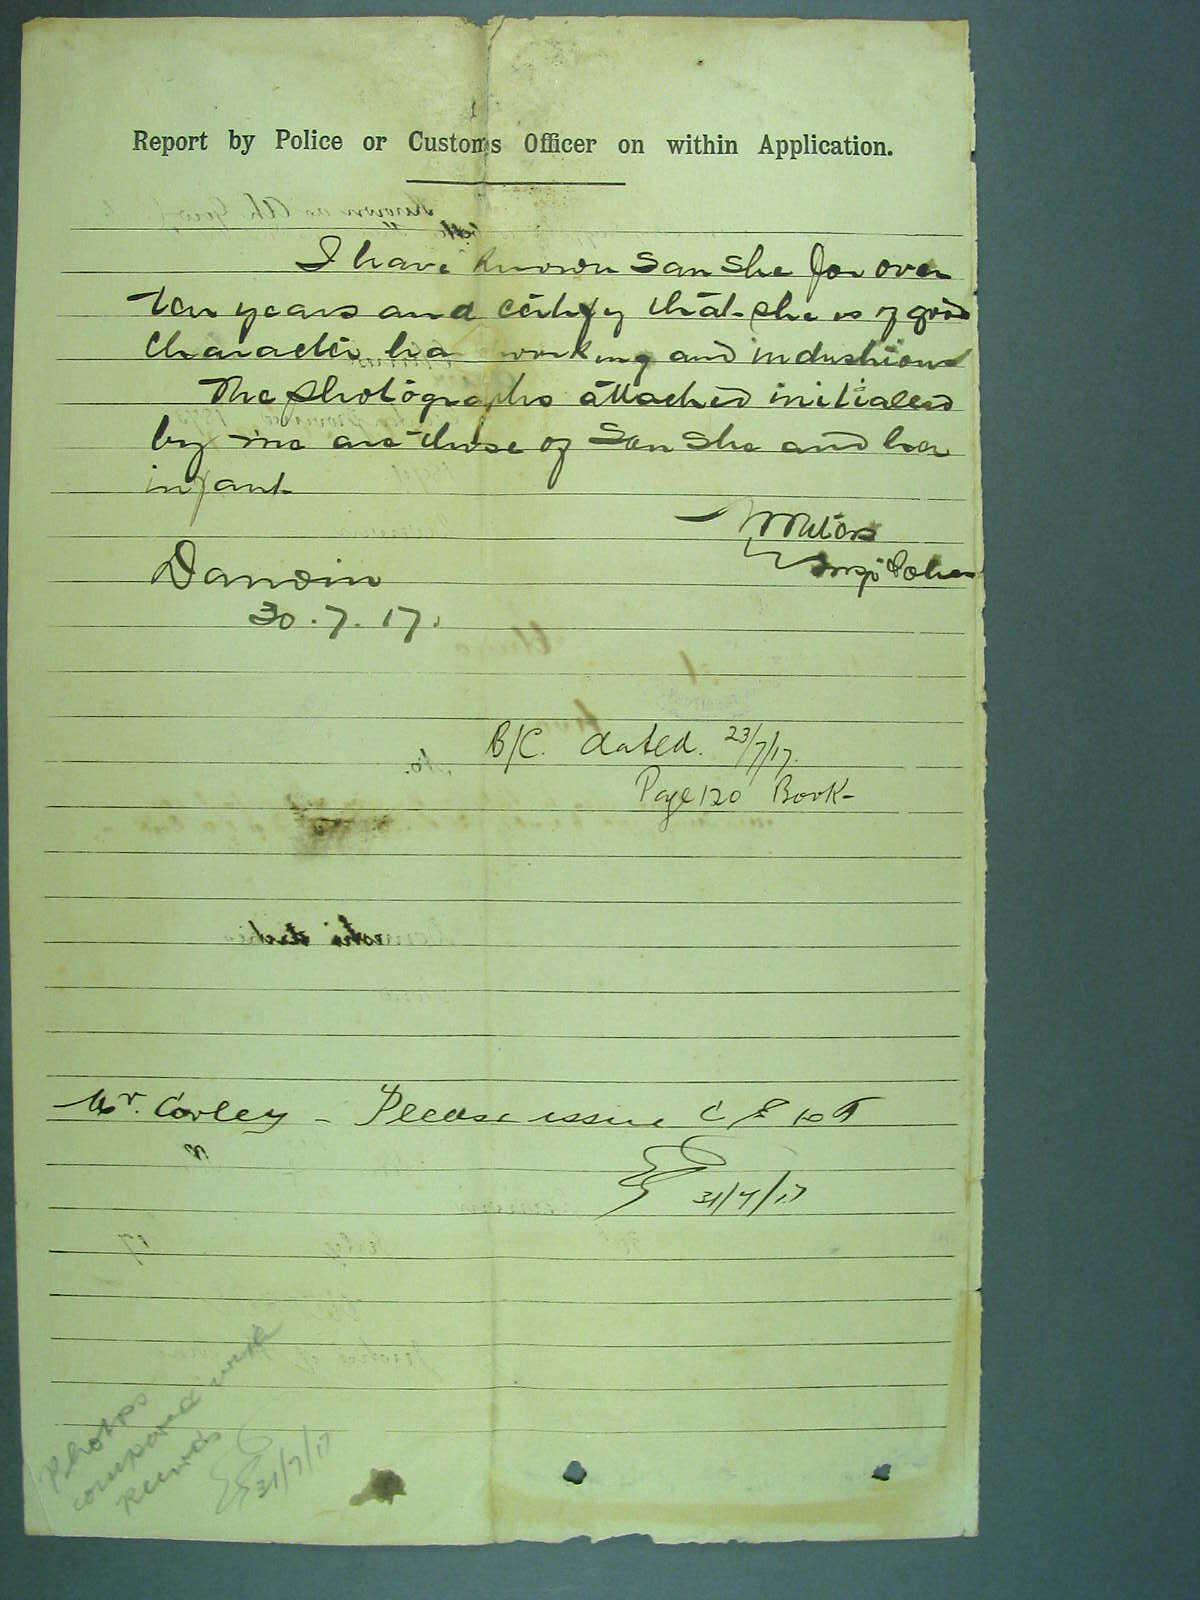 Report by Police or Customs Officer on within Application.
I have known San She for over
ten years and certify that she is of good
character, ha working and industrious
The photographs attached initialed
by me are those of San She and her
infant
Waters
Insp Police
Darwin
30.7.17.
B/C. dated. 23/7/17.
Page 120 Book-
Mr. Corley - Please issue C E D T
31/7/17
Photos
compared with
records
31/7/17